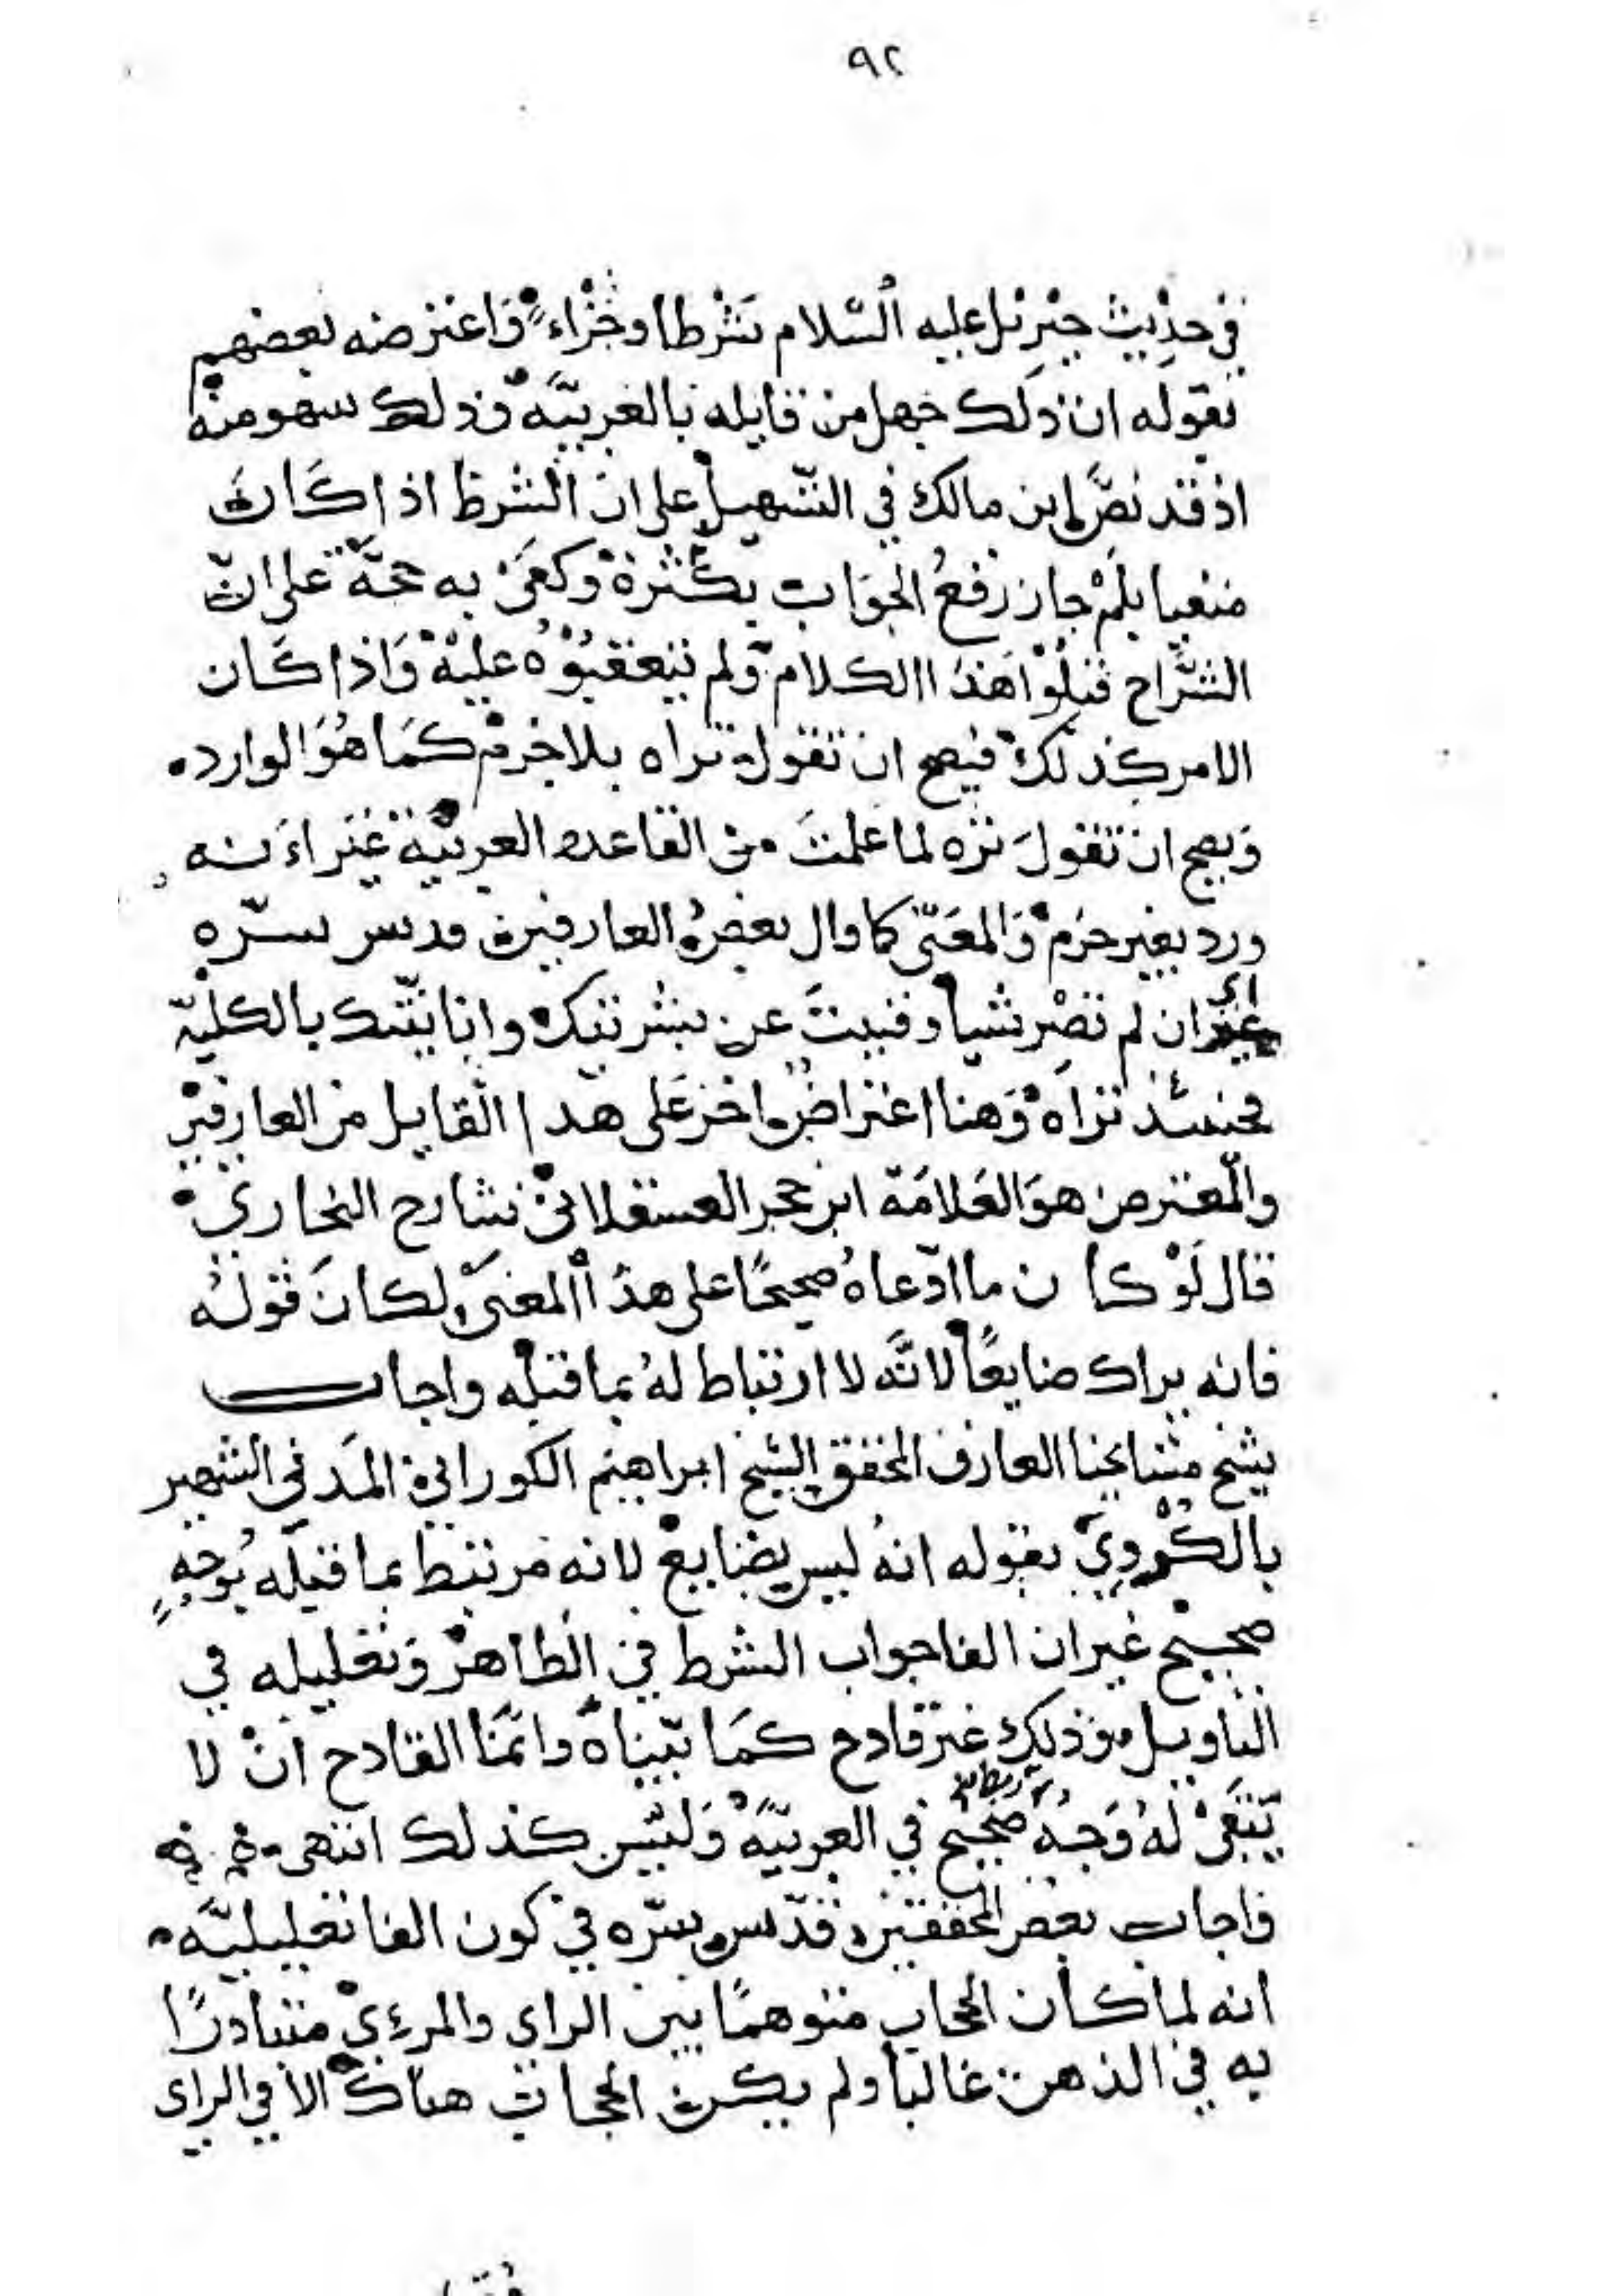 ٩٢
في حديث جبريل عليه السّلام شرطا وجزاء واعترضه بعضهم
بقوله ان ذلك جهل من قايله بالعربيّة وذلك سهو منه
اذ قد نصّ ابن مالك في التسهيل على ان الشرط اذا كان
منفيا بلم جاز رفع الجواب بكثرة وكفى به حجّة على انّ
الشرّاح قبلوا هذا الكلام ولم يتعقبوه عليه واذا كان
الامر كذلك فيصح ان تقول تراه بلا جزم كما هو الوارد
ويصح ان تقول تره لما علمت من القاعده العربيّة غير انه
ورد بغير جزم والمعنى كما قال بعض العارفين قدس سرّه
اي ان لم تصر شيا وفنيت عن بشريتك وانانيّتك بالكليّه
فحينئذ تراه وهنا اعتراض اخر على هذا القايل من العارفين
والمعترض هو العلامة ابن حجر العسقلاني شارح البخاري
قال لو كان ما ادّعاه صحيحًا على هذا المعنى لكان قوله
فانه يراك ضايعًا لانّه لا ارتباط له بما قبله واجاب
شيخ مشايخنا العارف المحقق الشيخ ابراهيم الكوراني المدني الشهير
بالكردي بقوله انه ليس بضايع لانه مرتبط بما قبله بوجهٍ
صحيح غير ان الفا جواب الشرط في الظاهر وتعليله في
التاويل وذلك غير قادح كما بيّناه وانّما القادح ان لا
يبقى له وجه صحيح في العربيّه وليس كذلك انتهى
فاجاب بعض المحققين قدّس سرّه في كون الفا تعليليّه
انه لما كان الحجاب متوهمًا بين الراي والمرءي متبادرًا
به في الذهن غالبا ولم يكن الحجاب هناك الا في الراي